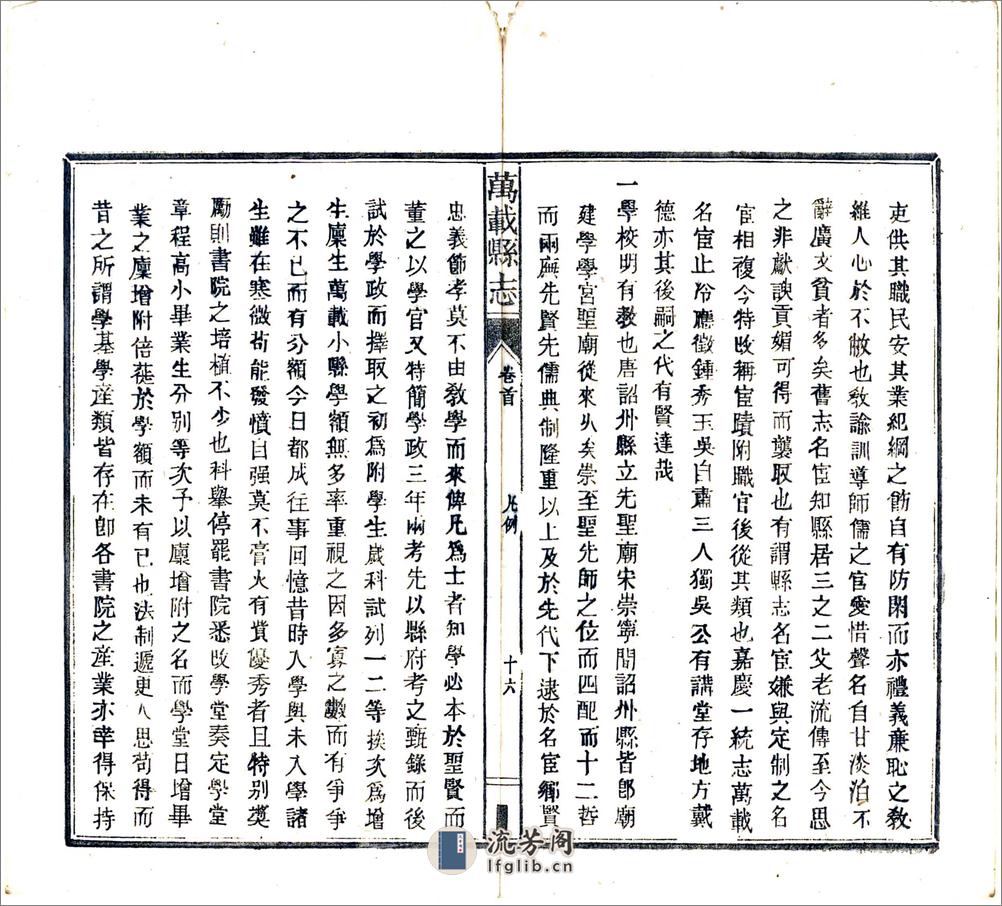 吏供其職民安其業紀綱之飭自有防閑而亦禮義廉恥之敎
維人心於不敝也敎諭訓導師儒之官愛惜聲名自甘淡泊不
辭廣文貧者多矣舊志名宦知縣居三之二父老流傳至今思
之非獻諛貢媚可得而襲取也有謂縣志名宦嫌與定制之名
宦相複今特改稱宦蹟附職官後從其類也嘉慶一統志萬載
名宦止冷應徵鍾秀玉吳自肅三人獨吳公有講堂存地方戴
德亦其後嗣之代有賢達哉
一學校明有敎也唐詔州縣立先聖廟宋崇寧間詔州縣皆卽廟
建學學宮聖廟從來久矣崇至聖先師之位而四配而十二哲
而兩廡先賢先儒典制隆重以上及於先代下逮於名宦鄕賢
萬載縣志
卷首
凡例
十六
忠義節孝莫不由敎學而來俾凡爲士者知學必本於聖賢而
董之以學官又特簡學政三年兩考先以縣府考之甄錄而後
試於學政而擇取之初爲附學生歲科試列一二等挨次爲增
生廩生萬載小縣學額無多率重視之因多寡之數而有爭爭
之不已而有分額今日都成往事回憶昔時入學與未入學諸
生雖在寒微茍能發憤自强莫不膏火有貲優秀者且特别奬
勵則書院之培植不少也科舉停罷書院悉改學堂奏定學堂
章程高小畢業生分别等次予以廩增附之名而學堂日增畢
業之廩增附倍蓰於學額而未有已也法制遞更人思茍得而
昔之所謂學基學產類皆存在卽各書院之產業亦幸得保持
流芳阁
lfglib.cn